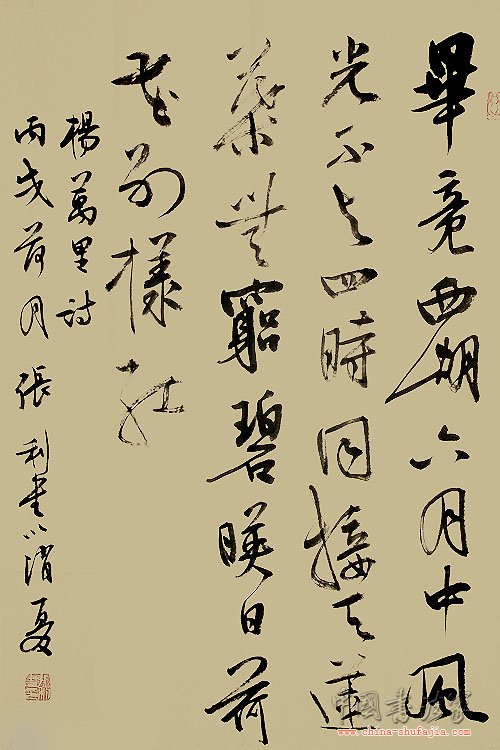 畢竟西湖六月中風
光不与四時同接天蓮
葉無窮碧暎日荷
花別樣紅
楊萬里詩
丙戌荷月 張利書以消夏
www.china-shufajia.com